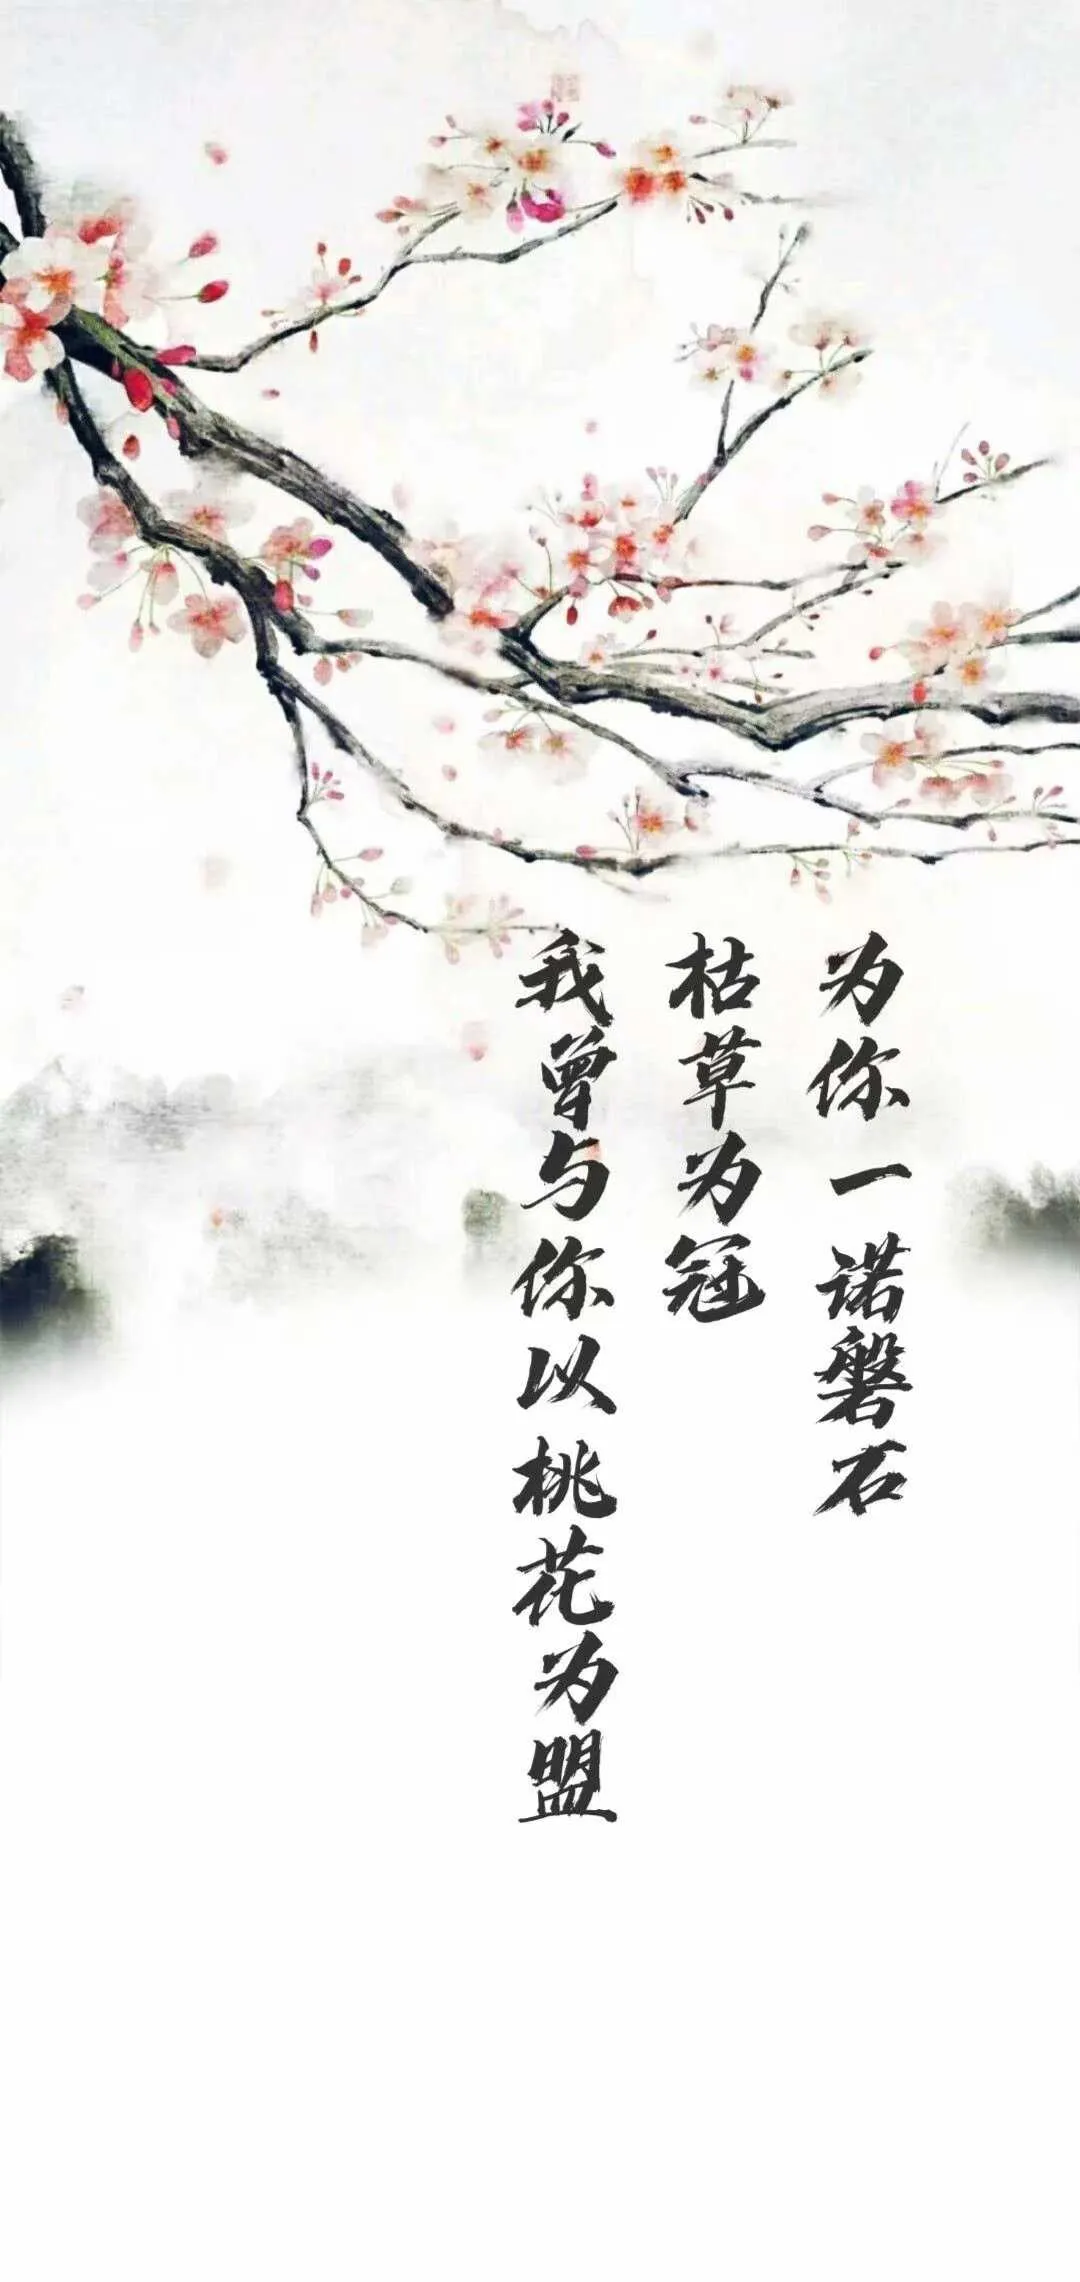 为你一诺磐石
枯草为冠
我曾与你以桃花为盟